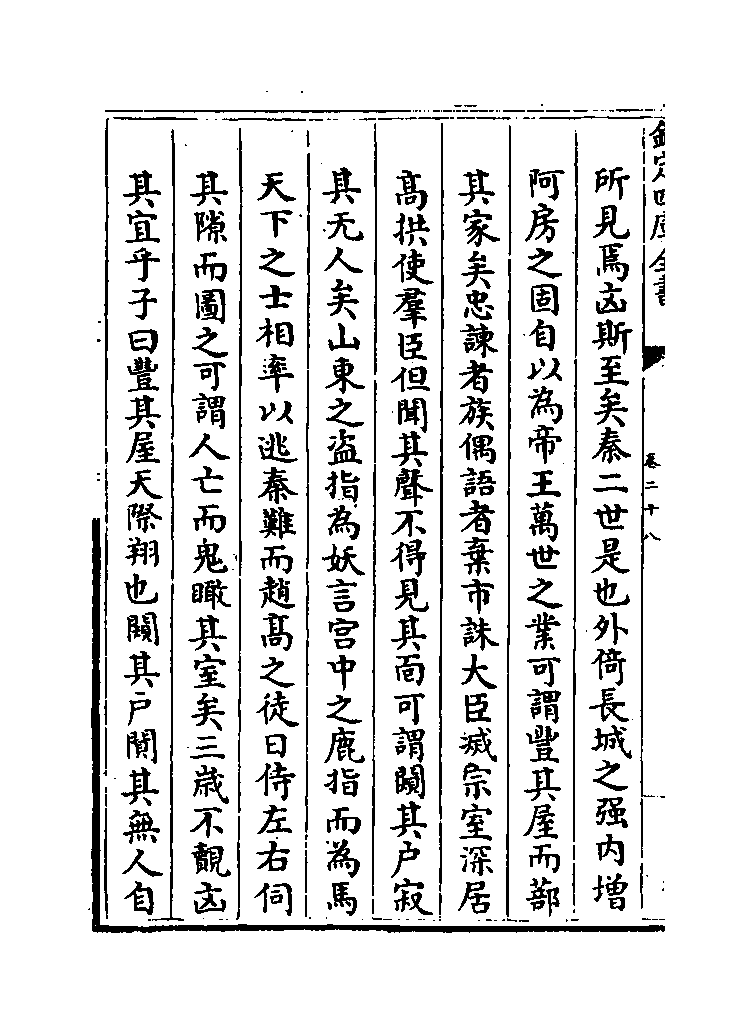 欽定四庫全書
卷二十八
所見焉凶斯至矣秦二世是也外倚長城之强内增
阿房之固自以為帝王萬世之業可謂豐其屋而蔀
其家矣忠諫者族偶語者棄市誅大臣滅宗室深居
高拱使羣臣但聞其聲不得見其面可謂闚其户寂
其无人矣山東之盜指為妖言宫中之鹿指而為馬
天下之士相率以逃秦難而趙髙之徒日侍左右伺
其隙而圖之可謂人亡而鬼瞰其室矣三歲不覿凶
其宜乎子曰豐其屋天際翔也闚其户闃其無人自